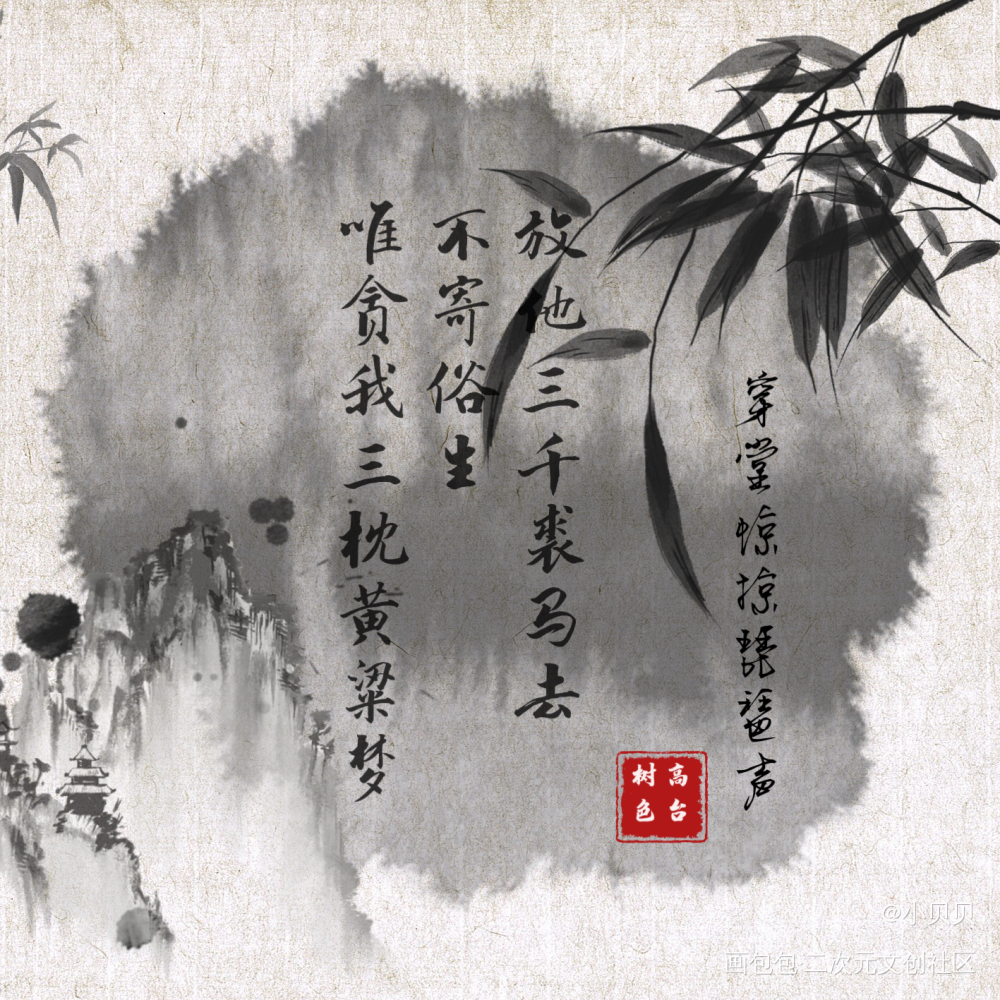 穿堂惊掠琵琶声
放他三千裘马去
不寄俗生
唯贪我三枕黄粱梦
高台
树色
@小贝贝
画包包·二次元文创社区